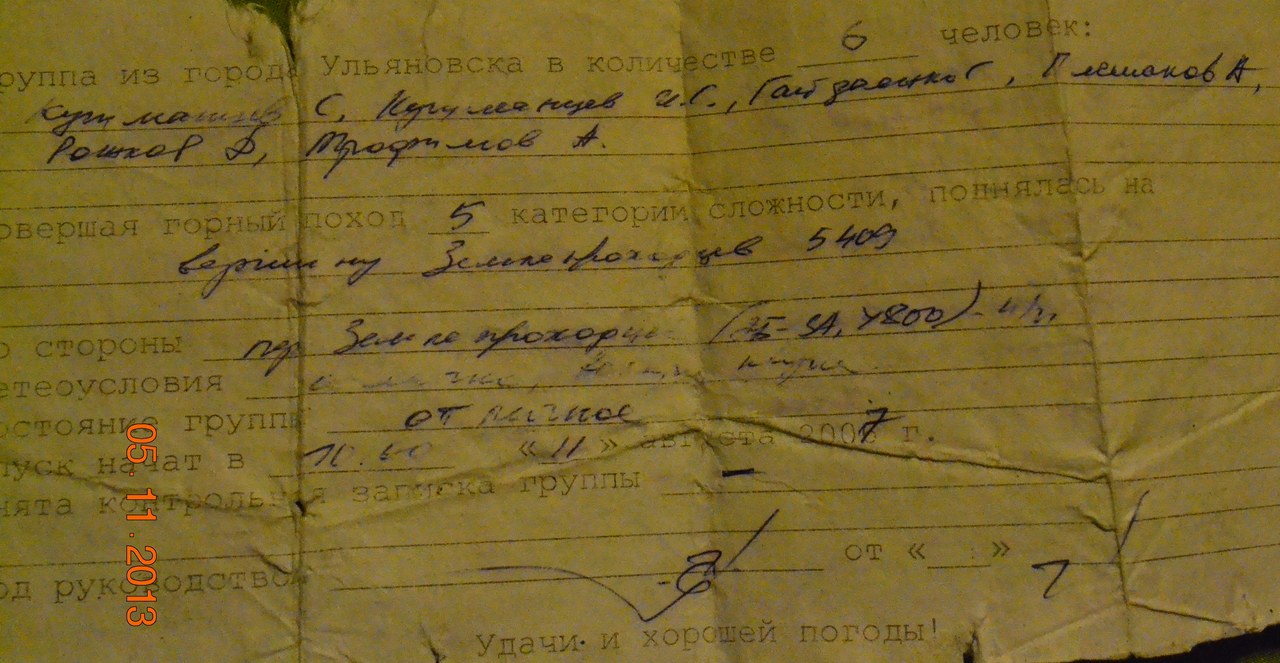 руппа из города Ульяновска в количестве 6 человек:
С, И.С., А,
Рожков Д, Трофимов А.
овершая горный поход 5 категории сложности, поднялась на
вершину Землепроходцев 5409
о стороны пер Землепроходцев 4800)
етеоусловия отлично,
остояние группы отличное
пуск начат в « 11 » августа 2007 г.
нята контрольная записка группы —
од руководством от « »
Удачи и хорошей погоды!
05.11.2013